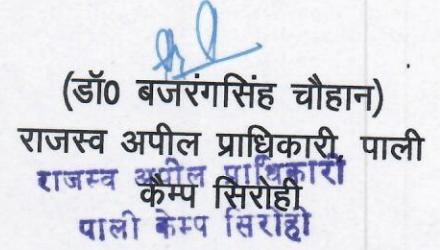 (डॉ0 बजरंगसिंह चौहान)
राजस्व अपील प्राधिकारी, पाली
राजस्व अपील प्राधिकारी
कैम्प सिरोही
पाली केम्प सिरोही